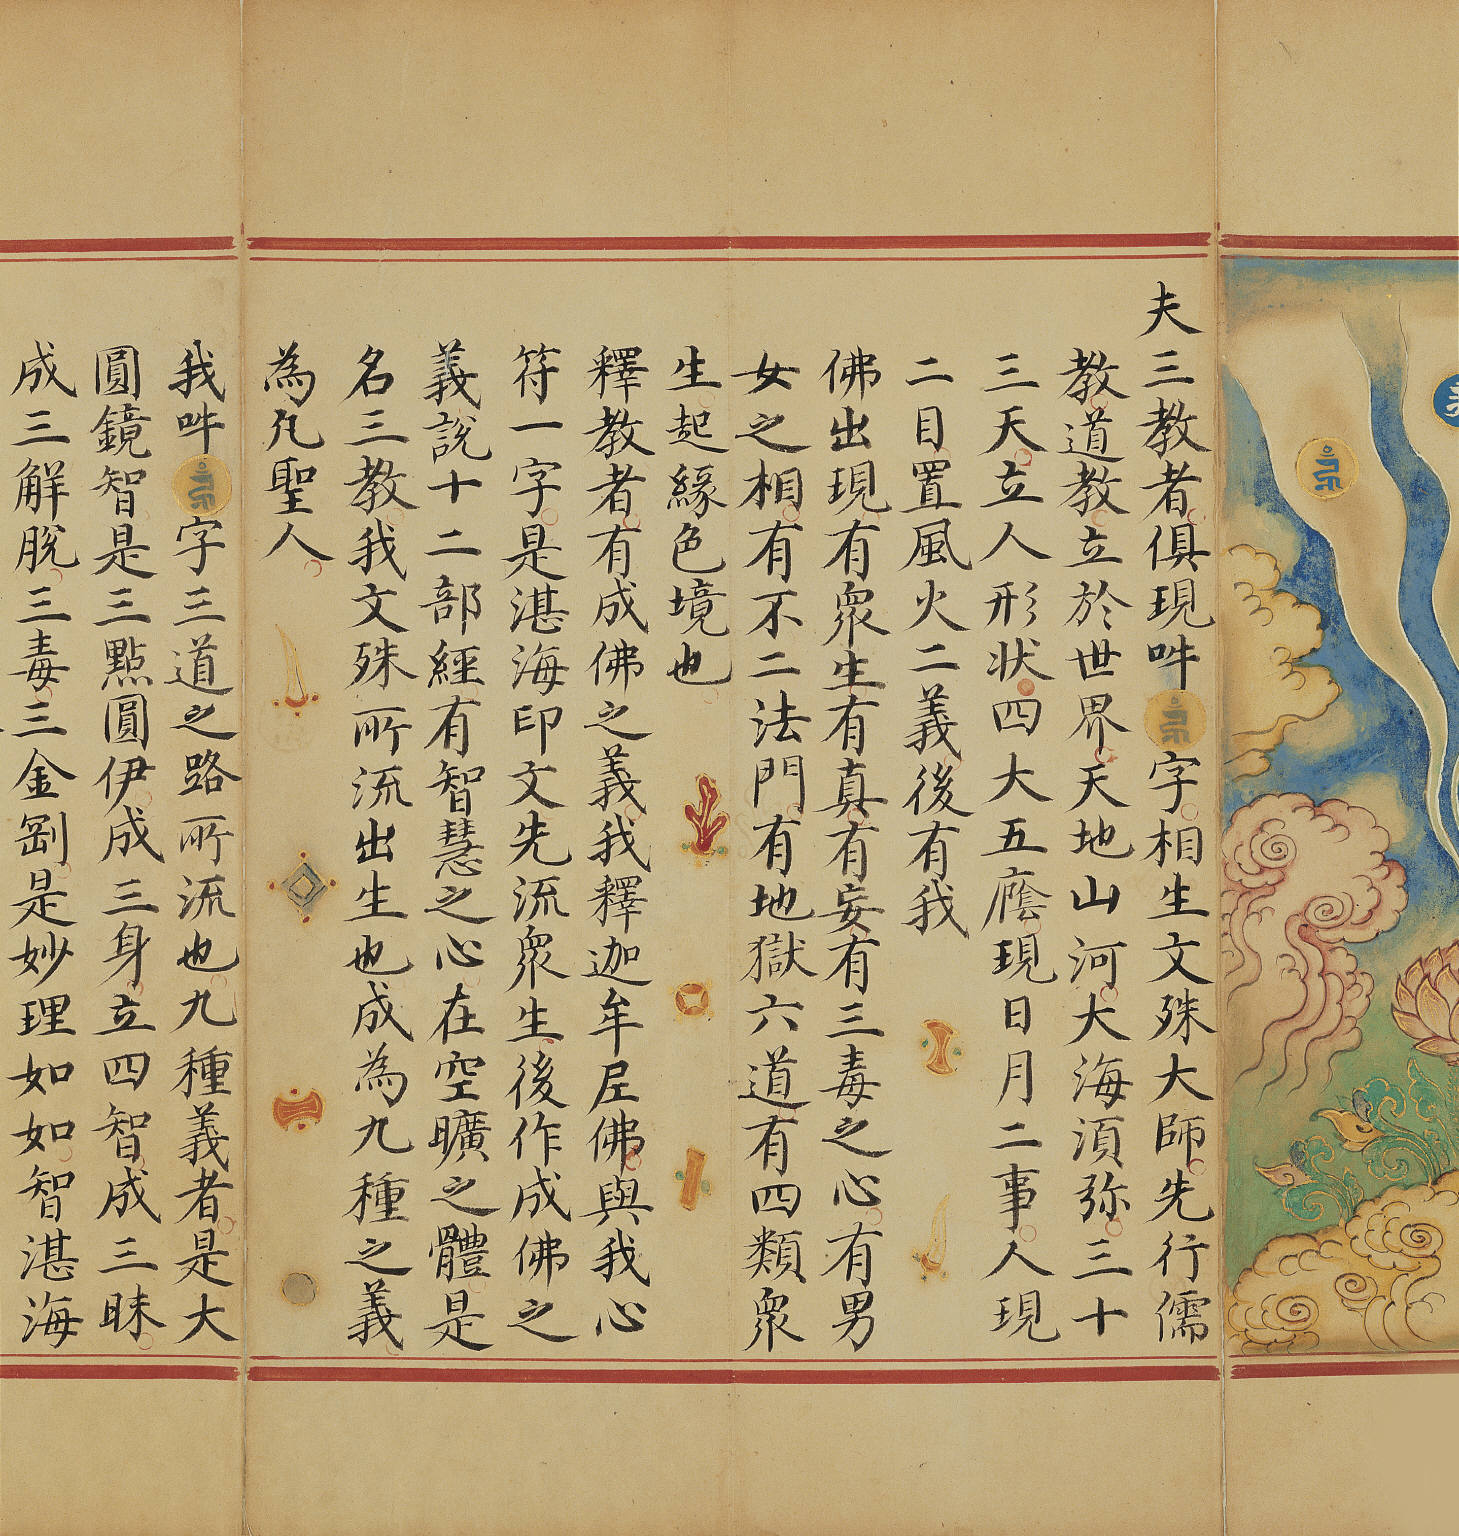 夫三教者俱現吽字相生文殊大師先行儒
教道教立於世界天地山河大海湏弥三十
三天立人形状四大五廕現日月二事人現
二目置風火二義後有我
佛出現有衆生有真有妄有三毒之心有男
女之相有不二法門有地獄六道有四類衆
生起緣色境也
釋教者有成佛之義我釋迦牟尼佛與我心
符一字是湛海印文先流衆生後作成佛之
義說十二部經有智慧之心在空曠之體是
名三教我文殊所流出生也成為九種之義
為凡聖人
我吽字三道之路所流也九種義者是大
圓鏡智是三點圓伊成三身立四智成三昧
成三解脫三毒三金剛是妙理如如智湛海